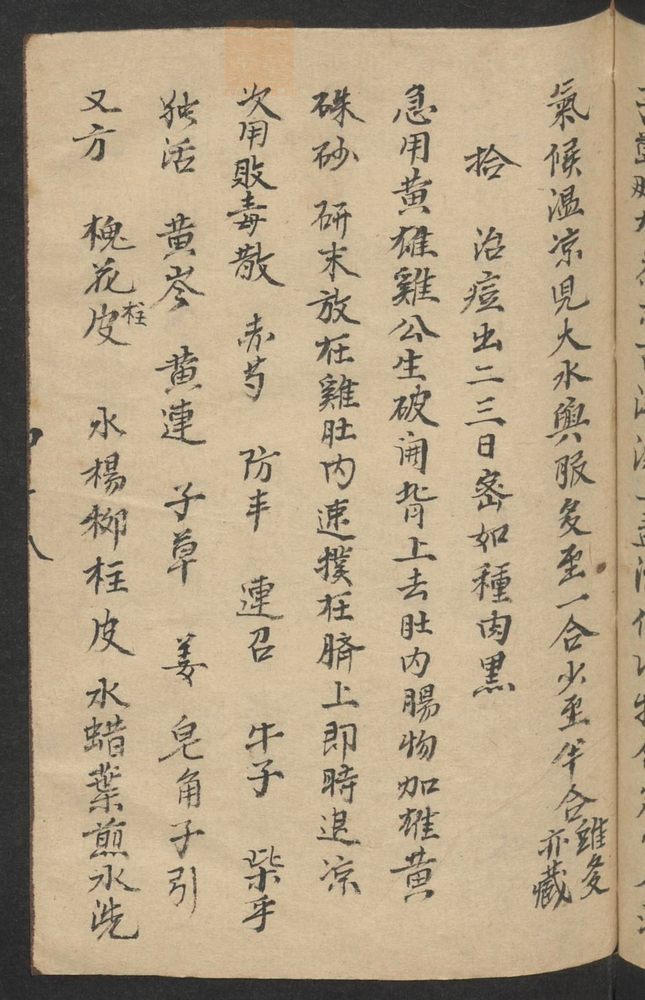 氣候温凉児大水與服多至一合少至半合雖多亦藏
拾 治痘出二三日密如種肉黑
急用黄雄雞公生破開背上去肚内腸物加雄黄
硃砂 研末放在雞肚内速撲在臍上即時退凉
次用敗毒散 赤芍 防丰 連召 牛子 柴乎
独活 黄岑 黄連 子草 姜 皂角子引
又方 槐花皮柱 水楊柳柱皮 水蜡葉煎水洗